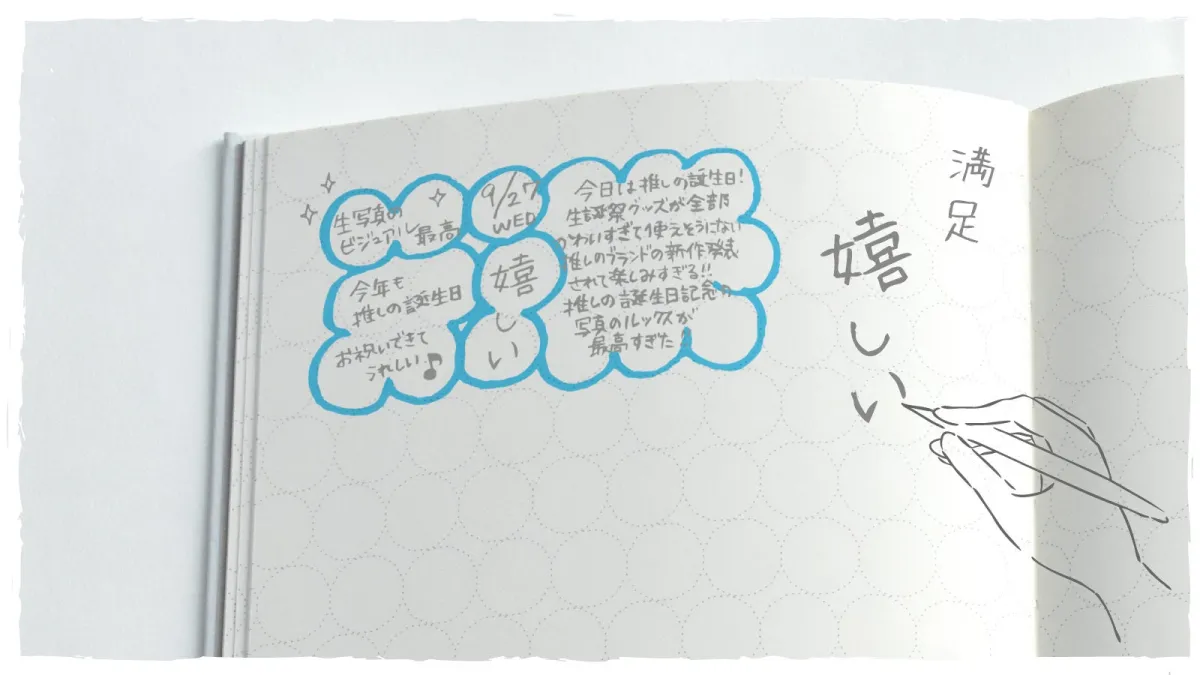 生写真の
ビジュアル最高
今年も
推しの誕生日
お祝いできて
うれしい♪
9/27
WED
嬉しい
今日は推しの誕生日!
生誕祭グッズが全部
かわいすぎて使えそうにない
推しのブランドの新作発表
されて楽しみすぎる!!
推しの誕生日記念の
写真のルックスが
最高すぎた
満足
嬉しい